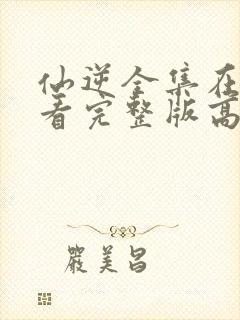 仙逆全集在
看完整版高
嚴美昌